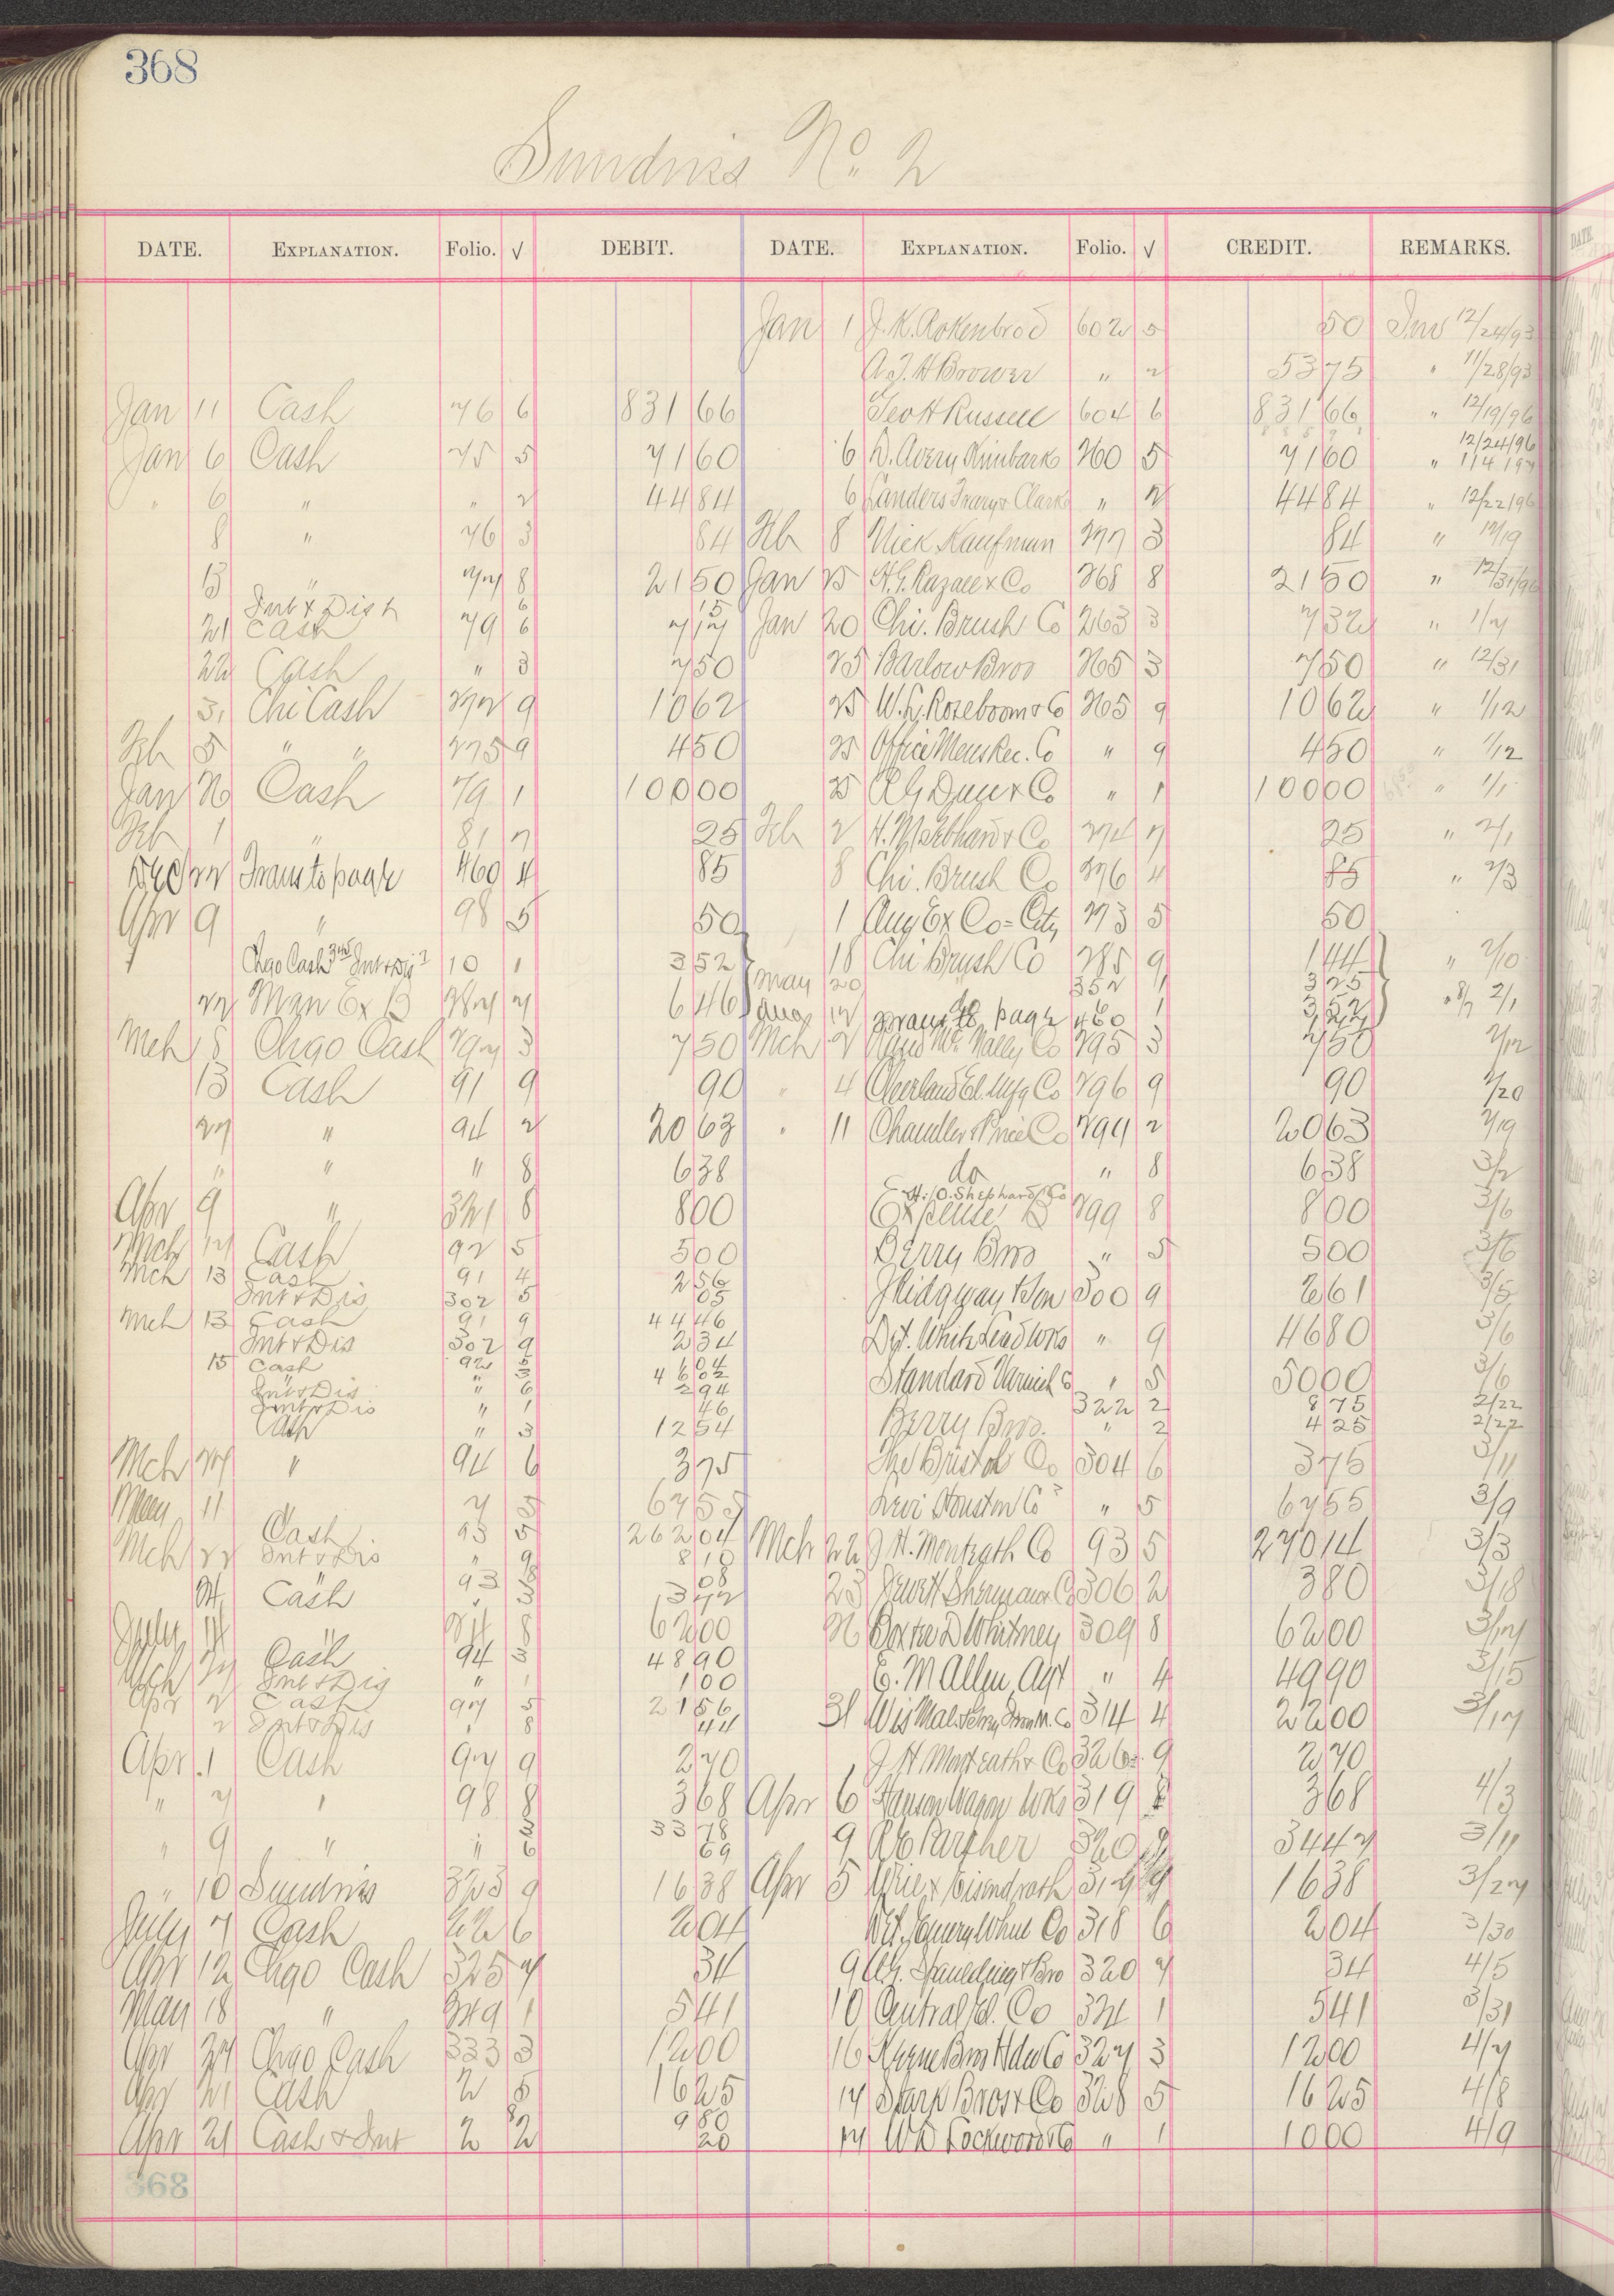 368
Sundries No. 2
DATE. EXPLANATION. Folio. √ DEBIT. DATE. EXPLANATION. Folio. √ CREDIT. REMARKS.
Jan 1 J. K. Rokenbrod 602 5 50 Inv 12/24/93
A. J. H Brower " 2 53 75 " 11/28/93
Jan 11 Cash 76 6 831 66 Geo H Russell 604 6 831 66 " 12/19/96
Jan 6 Cash 75 5 71 60 6 D. Avery Kimbark 260 5 71 60 " 12/24/96 1/4/97
" 6 " " 2 44 84 6 Landers Frary & Clark " 2 44 84 " 12/22/96
8 " 76 3 84 Feb 8 Nick Kaufman 277 3 84 " 12/19
13 " 77 8 21 50 Jan 25 268 8 21 50 " 12/31/96
Int & Dis 15 6
21 Cash 79 6 7 17 Jan 20 Chi. Brush Co 263 3 7 32 " 1/7
22 Cash " 3 7 50 25 Barlow Bros 265 3 7 50 " 12/31
31 Chi Cash 272 9 10 62 25 W. L. Roseboom & Co 265 9 10 62 " 1/12
Feb 5 " " 275 9 4 50 25 Office Mens Rec. Co " 9 4 50 " 1/12
Jan 26 Cash 79 1 100 00 25 R G Dun & Co " 1 100 00 " 1/1
Feb 1 " 81 7 25 Feb 2 274 7 25 " 2/1
Dec 22 Trans to page 460 4 85 8 Chi. Brush Co 276 4 85 " 2/3
Apr 9 " 98 5 50 1 Am Ex Co = City 273 5 50
Chgo Cash 345 Int & Dis 7 10 1 3 52 18 Chi Brush Co 285 9 1 44 " 2/10
May 20 352 1 3 25
27 Man Ex B 287 7 6 46 Aug 12 Trans to page 460 1 3 52 " 2/1
Mch 8 Chgo Cash 297 3 7 50 Mch 2 Rand McNally Co 295 3 7 50 2/12
13 Cash 91 9 90 " 4 296 9 90 2/20
27 " 94 2 20 63 " 11 Chandler & Price Co 299 2 20 63 2/19
" " " 8 6 38 do " 8 6 38 3/2
H. O. Shephard Co
Apr 9 " 321 8 8 00 Expense B 299 8 8 00 3/6
Mch 17 Cash 92 5 5 00 Berry Bros " 5 5 00 3/6
Mch 13 Cash 91 4 2 56
Int & Dis 302 5 05 J Ridgway & Son 300 9 2 61 3/5
Mch 13 Cash 91 9 44 46
Int & Dis 302 9 2 34 Det. White Lead Wks " 9 46 80 3/6
15 Cash 92 5 46 04 Standard Varnish Co " 5 50 00 3/6
Int & Dis " 6 2 94
Int & Dis " 1 46 322 2 8 75 2/22
Cash " 3 12 54 Berry Bros. " 2 4 25 2/22
Mch 27 " 94 6 3 75 The Bristol Co 304 6 3 75 3/11
May 11 7 67 55 Levi Houston Co " 5 67 55 3/9
Cash 93 5 262 04
Mch 22 Int & Dis " 9 8 10 Mch 22 J H. Montrath Co 93 5 270 14 3/3
08
24 Cash 93 3 3 72 23 Jewett Sherman Co 306 2 3 80 3/18
July 14 " 62 00 26 Baxter D Whitney 309 8 62 00 3/17
Mch 27 Cash 94 3 48 90
Int & Dis " 1 1 00 E. M Allen, Agt " 4 49 90 3/15
Apr 2 Cash 97 5 21 56
2 Int & Dis " 8 44 31 314 4 22 00 3/17
Apr. 1 Cash 97 9 2 70 J H. Montrath & Co 326 9 2 70
" 7 " 98 8 3 68 Apr 6 Hanson Wagon Wks 319 8 3 68 4/3
" 9 " " 33 78 69 9 320 34 47 3/11
" 10 Sundries 323 9 16 38 Apr 5 317 9 16 38 3/27
July 7 Cash 22 6 2 04 318 6 2 04 3/30
Apr 12 Chgo Cash 325 7 34 9 A. G. Spaulding & Bro 320 7 34 4/5
May 18 " 349 1 5 41 10 Central El. Co 321 1 5 41 3/31
Apr 27 Chgo Cash 333 3 12 00 16 327 3 12 00 4/7
Apr 21 Cash 2 5 16 25 17 Sharp Bros & Co 328 5 16 25 4/8
Apr 21 Cash & Int 2 8 2 9 80 20 17 W D Lockwood & Co " 1 10 00 4/9
368